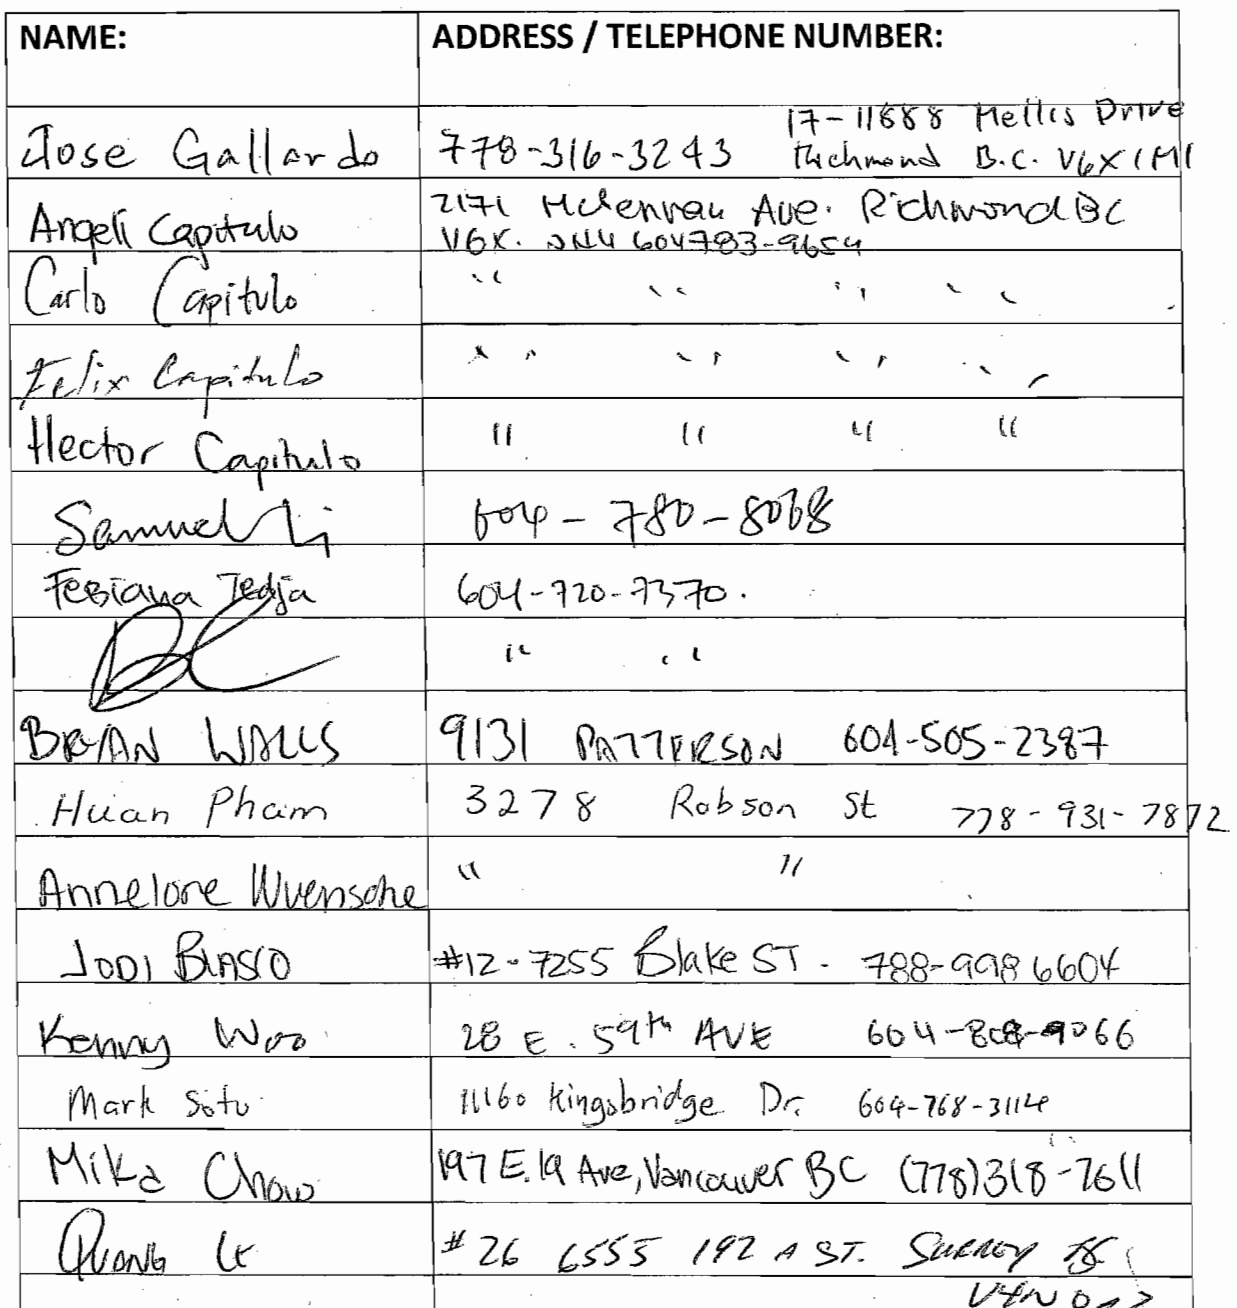 NAME: ADDRESS / TELEPHONE NUMBER:
17-11888 Mellis Drive
Jose Gallardo 778-316-3243 Richmond B.C. V6X 1M1
2171 McLennan Ave. Richmond BC
Angeli Capitulo V6X. 604783-9654
Carlo Capitulo " " " "
Felix Capitulo " " " "
Hector Capitulo " " " "
Samuel Li 604-780-8068
Febiana Tedja 604-720-7370.
" "
BRIAN WALLS 9131 PATTERSON 604-505-2387
Huan Pham 3278 Robson St 778-931-7872
Annelore Wuensche " "
JODI BLASCO #12-7255 Blake ST. 788-998 6604
Kenny Woo 28 E. 59th AVE 604-808-9066
Mark Situ 11160 Kingsbridge Dr. 604-768-3114
Mika Chow 197 E. 19 Ave, Vancouver BC (778)318-7611
QUANG LE #26 6555 192 A ST. SURREY BC
V4N